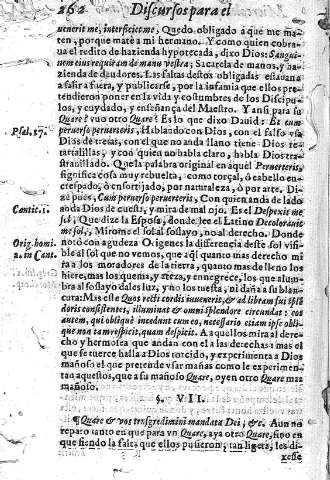 262 Discursos para el
uenerit me, interficiet me, Quedo obligado a que me ma-
ten, porque matè a mi hermano. Y como quien cobra-
ua el redito de hazienda hypotecada, dixo Dios: Sangui-
nem eius requiram de manu vestra; Sacarela de manos, y ha-
zienda de daudores. Las faltas destos obligadas estauan
a salir a fuera, y publicarse, por la infamia que ellos pre-
tendieron poner en la vida y costumbres de los Discipu-
los, y cuydado, y enseñança del Maestro. Y ansi para su
Quare? vuo otro Quare? Es lo que dixo Dauid: Et cum
Psal. 17. peruerso peruerteris, Hablando con Dios, con el falso vsa
Dios de tretas, con el que no anda llano tiene Dios re-
tartalillas, y con quien no habla claro, habla Dios tras-
tranillado. Que la palabra original en aquel Peruerteris,
significa cosa muy rebuelta, como torçal, ò cabello en-
crespado, ò ensortijado, por naturaleza, ò por arte. Di-
ze pues, Cum peruerso peruerteris, Con quien anda de lado
Cantic. 1. anda Dios de cuesta, y mira de mal ojo. Es el Despexit me
sol, Que dize la Esposa, donde lee el Latino Decolorauit
me sol, Mirome el sol al soslayo, no al derecho. Donde
Orig. homi. notò con agudeza Origenes la differencia deste sol visi-
2. in Cant. ble al sol que no vemos, que aqui quanto mas derecho mi-
ra a los moradores de la tierra, quanto mas de lleno los
hiere, mas los quema, y ateza, y ennegrece, los que alum-
bra al soslayo dales luz, y no los tuesta, ni daña a su blan-
cura: Mas este Quos recti cordis inuenerit, & ad libram sui splē
doris consistentes, illuminat & omni splendore circundat: eos
autem, qui obliquè incedunt cum eo, necessario etiam ipse obli-
què non tam respicit, quam despicit. A aquellos mira al dere-
cho y hermosea que andan con el a las derechas: mas el
que se tuerce halla a Dios torcido, y experimenta a Dios
mañoso el que pretende vsar mañas como le experimen-
tan aquestos, que a su mañoso Quare, oyen otro Quare mas
mañoso.
§. VII.
¶ Quare & vos transgredimini mandata Dei, &c. Aun no
reparo tanto en que para vn Quare, aya otro Quare, sino en
que siendo la falta que ellos pusieron, tan ligera, les di-
xesse